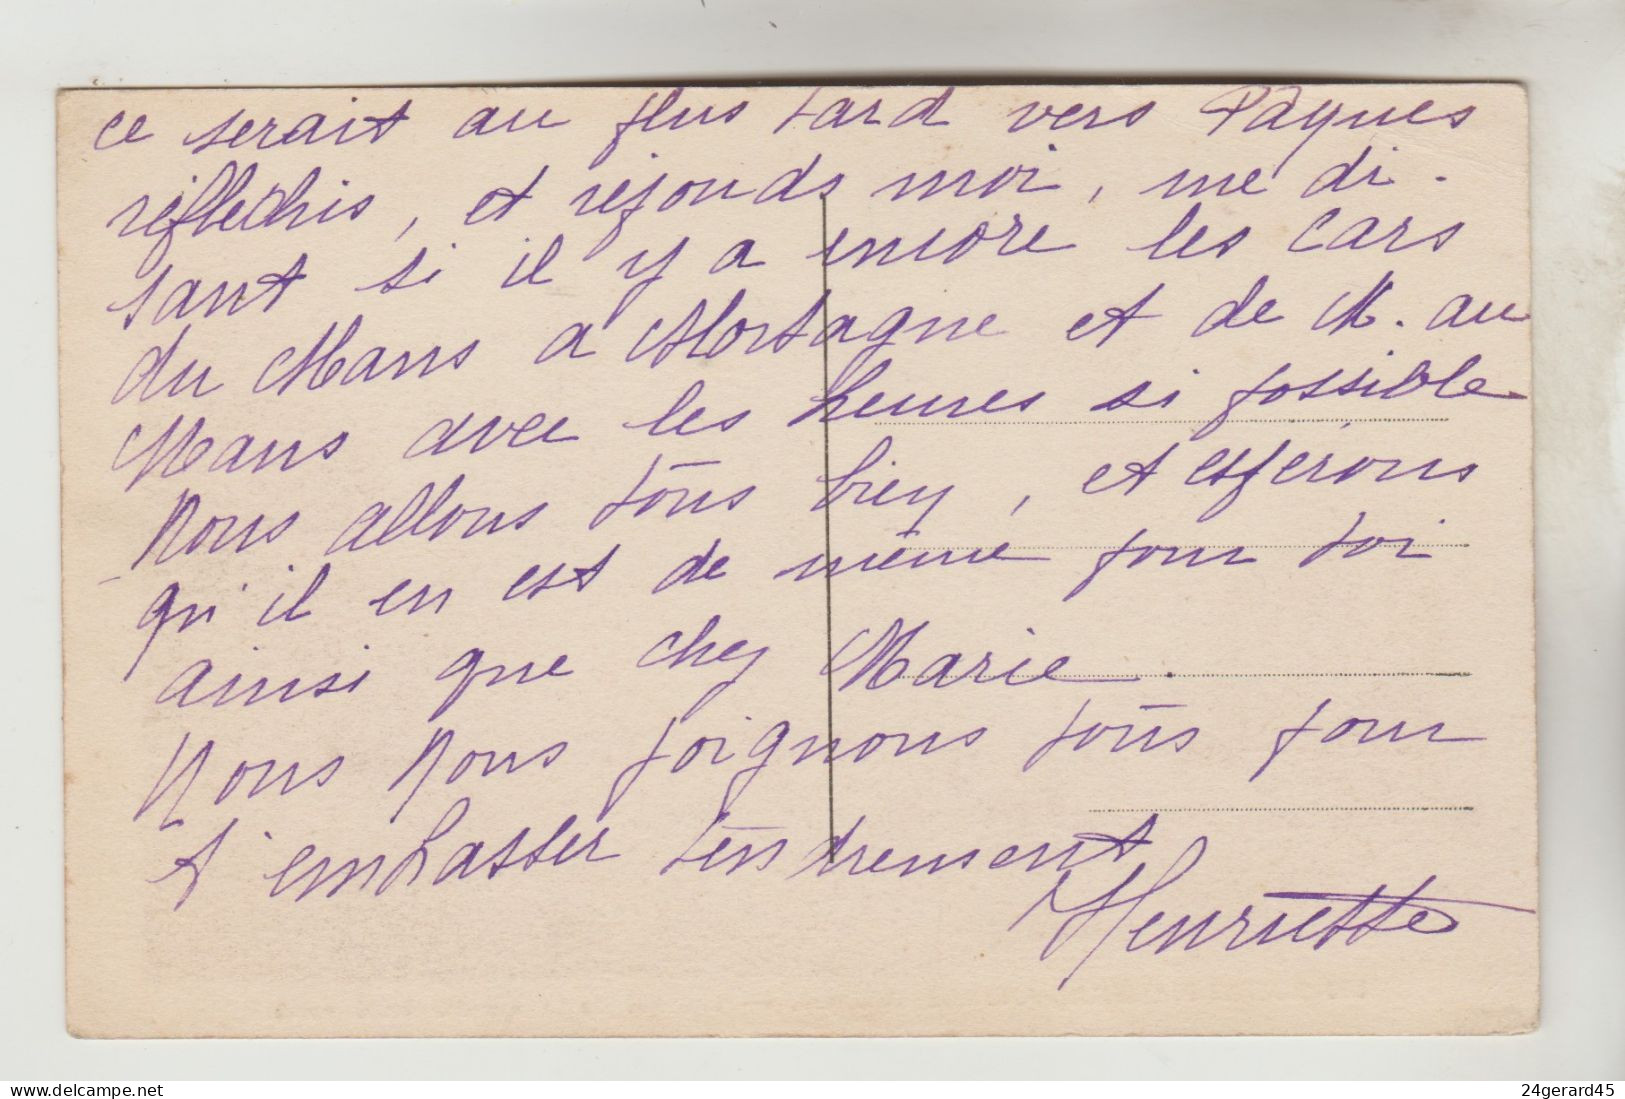 ce serait au plus tard vers Pâques
réflechis, et réponds moi, me di-
sant si il y a encore les cars
du Mans a Mortagne et de M. au
Mans avec les heures si possible
Nous allons tous bien, et espérons
qu'il en est de même pour toi
ainsi que chez Marie.
Nous nous joignons tous pour
t'embrasser tendrement
Henriette
delcampe.net
24gerard45